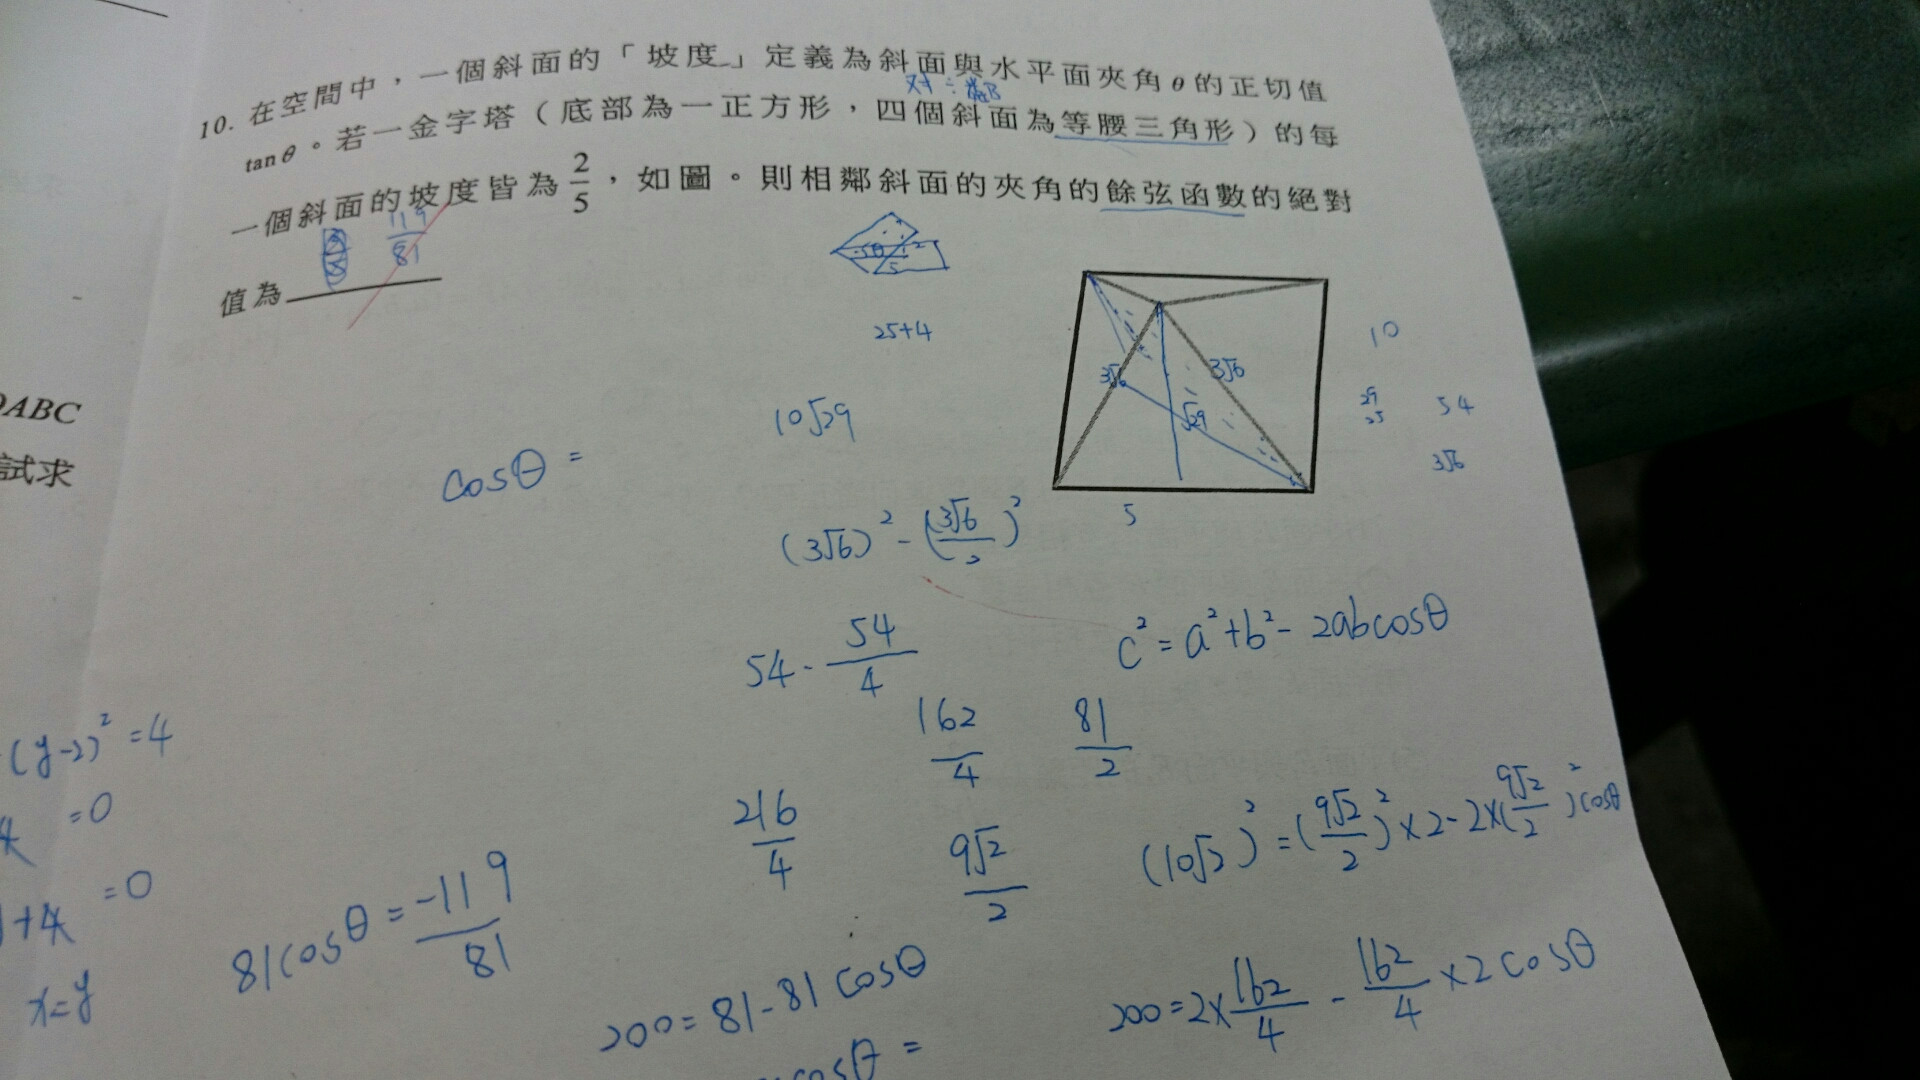 10. 在空間中，一個斜面的「坡度」定義為斜面與水平面夾角θ的正切值
对÷鄰
tanθ。若一金字塔（底部為一正方形，四個斜面為等腰三角形）的每
一個斜面的坡度皆為 2/5，如圖。則相鄰斜面的夾角的餘弦函數的絕對
119/81
值為
5
2
25+4
10
3√6
3√6
29
25
54
√29
3√6
10√29
cosθ =
5
(3√6)² - (3√6/2)²
54 - 54/4
c² = a² + b² - 2abcosθ
162/4
81/2
216/4
9√2/2
(10√2)² = (9√2/2)² × 2 - 2×(9√2/2)² cosθ
81cosθ = -119/81
200 = 81 - 81 cosθ
200 = 2×162/4 - 162/4 ×2 cosθ
cosθ =
ABC
試求
(y-2)² = 4
=0
+4 =0
x=y